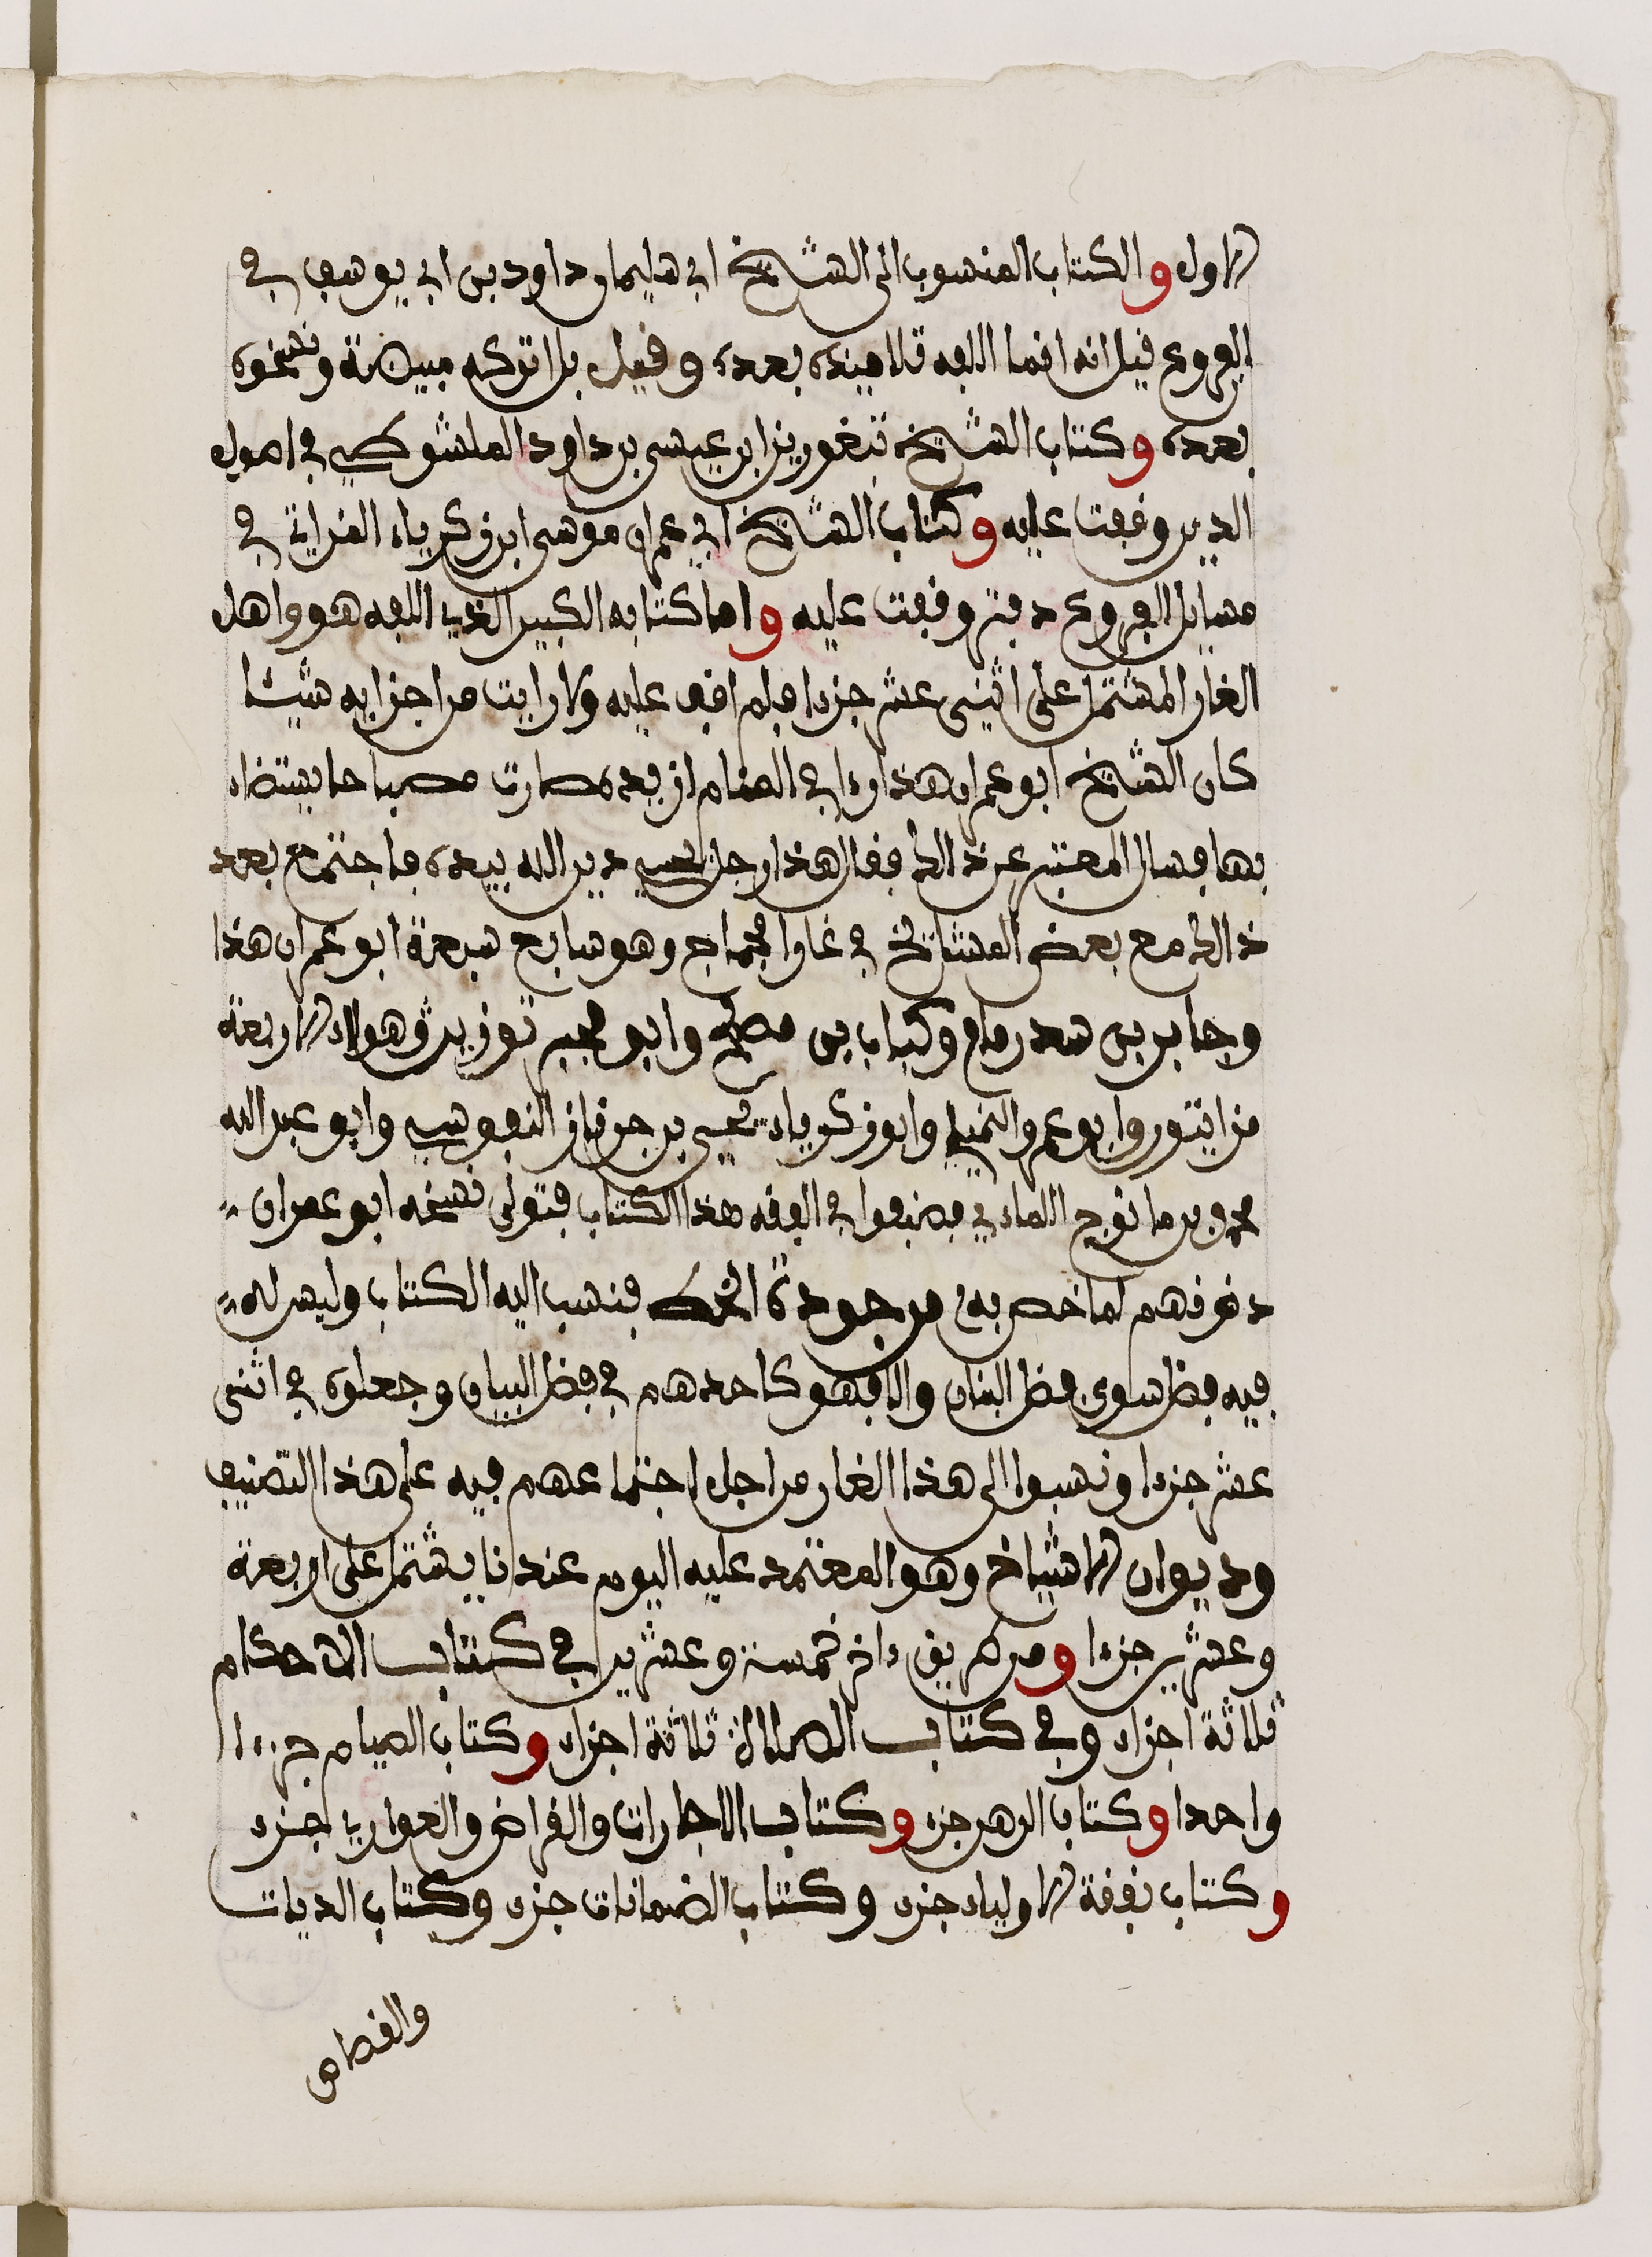 الاول والكتاب المنسوب الى الشيخ ابي سليمان داود بن ابي يوسف في
الفروع قيل انه انما الفه تلاميذه بعده وقيل بل اتركه مبيضة ونسخوه
بعده وكتاب الشيخ تبغورين ابن عيسى بن داود الملشوطي في اصول
الدين وقفت عليه وكتاب الشيخ ابي عمران موسى ابن زكرياء المزاتي في
مسايل الفروع دفتر وقفت عليه واما كتابه الكبير الذي الفه هو واهل
الغار المشتمل على اثني عشر جزءا فلم اقف عليه ولا رايت من اجزايه شيئا
كان الشيخ ابو عمران هذا رءا في المنام ان يده صارت مصباحا يستضاء
بها فسال المعبر عن ذالك فقال هذا رجل يحيي دين الله بيده فاجتمع بعد
ذالك مع بعض المشائخ في غار امجماج وهو سابع سبعة ابو عمران هذا
وجابر بن سدرمام وكباب بن مصلح وابو مجبر توزين وهولاء الاربعة
مزاتيون وابو عمرو النميلي وابو زكرياء يحيى بن جرناز النفوسي وابو عبد الله
محمد بن مانوج اللماءي فصنفوا في الفقه هذا الكتاب فتولى نسخه ابو عمران
دونهم لما خص به من جودة الخط فنسب اليه الكتاب وليس له
فيه فضل سوى فضل البنان والا فهو كاحدهم في فضل البيان وجعلوه في اثنى
عشر جزءا ونسبوا الى هذا الغار من اجل اجتماعهم فيه على هذا التصنيف
وديوان الاشياخ وهو المعتمد عليه اليوم عندنا يشتمل على اربعة
وعشرين جزءا ومن طريق ءاخر خمسة وعشرين في كتاب الاحكام
ثلاثة اجزاء وفي كتاب الصلاة ثلاثة اجزاء وكتاب الصيام جزءا
واحدا وكتاب الرهن جزء وكتاب الاجارات والقراض والعواري جزء
وكتاب نفقة الاولياء جزء وكتاب الضمانات جزء وكتاب الديات
والقصاص